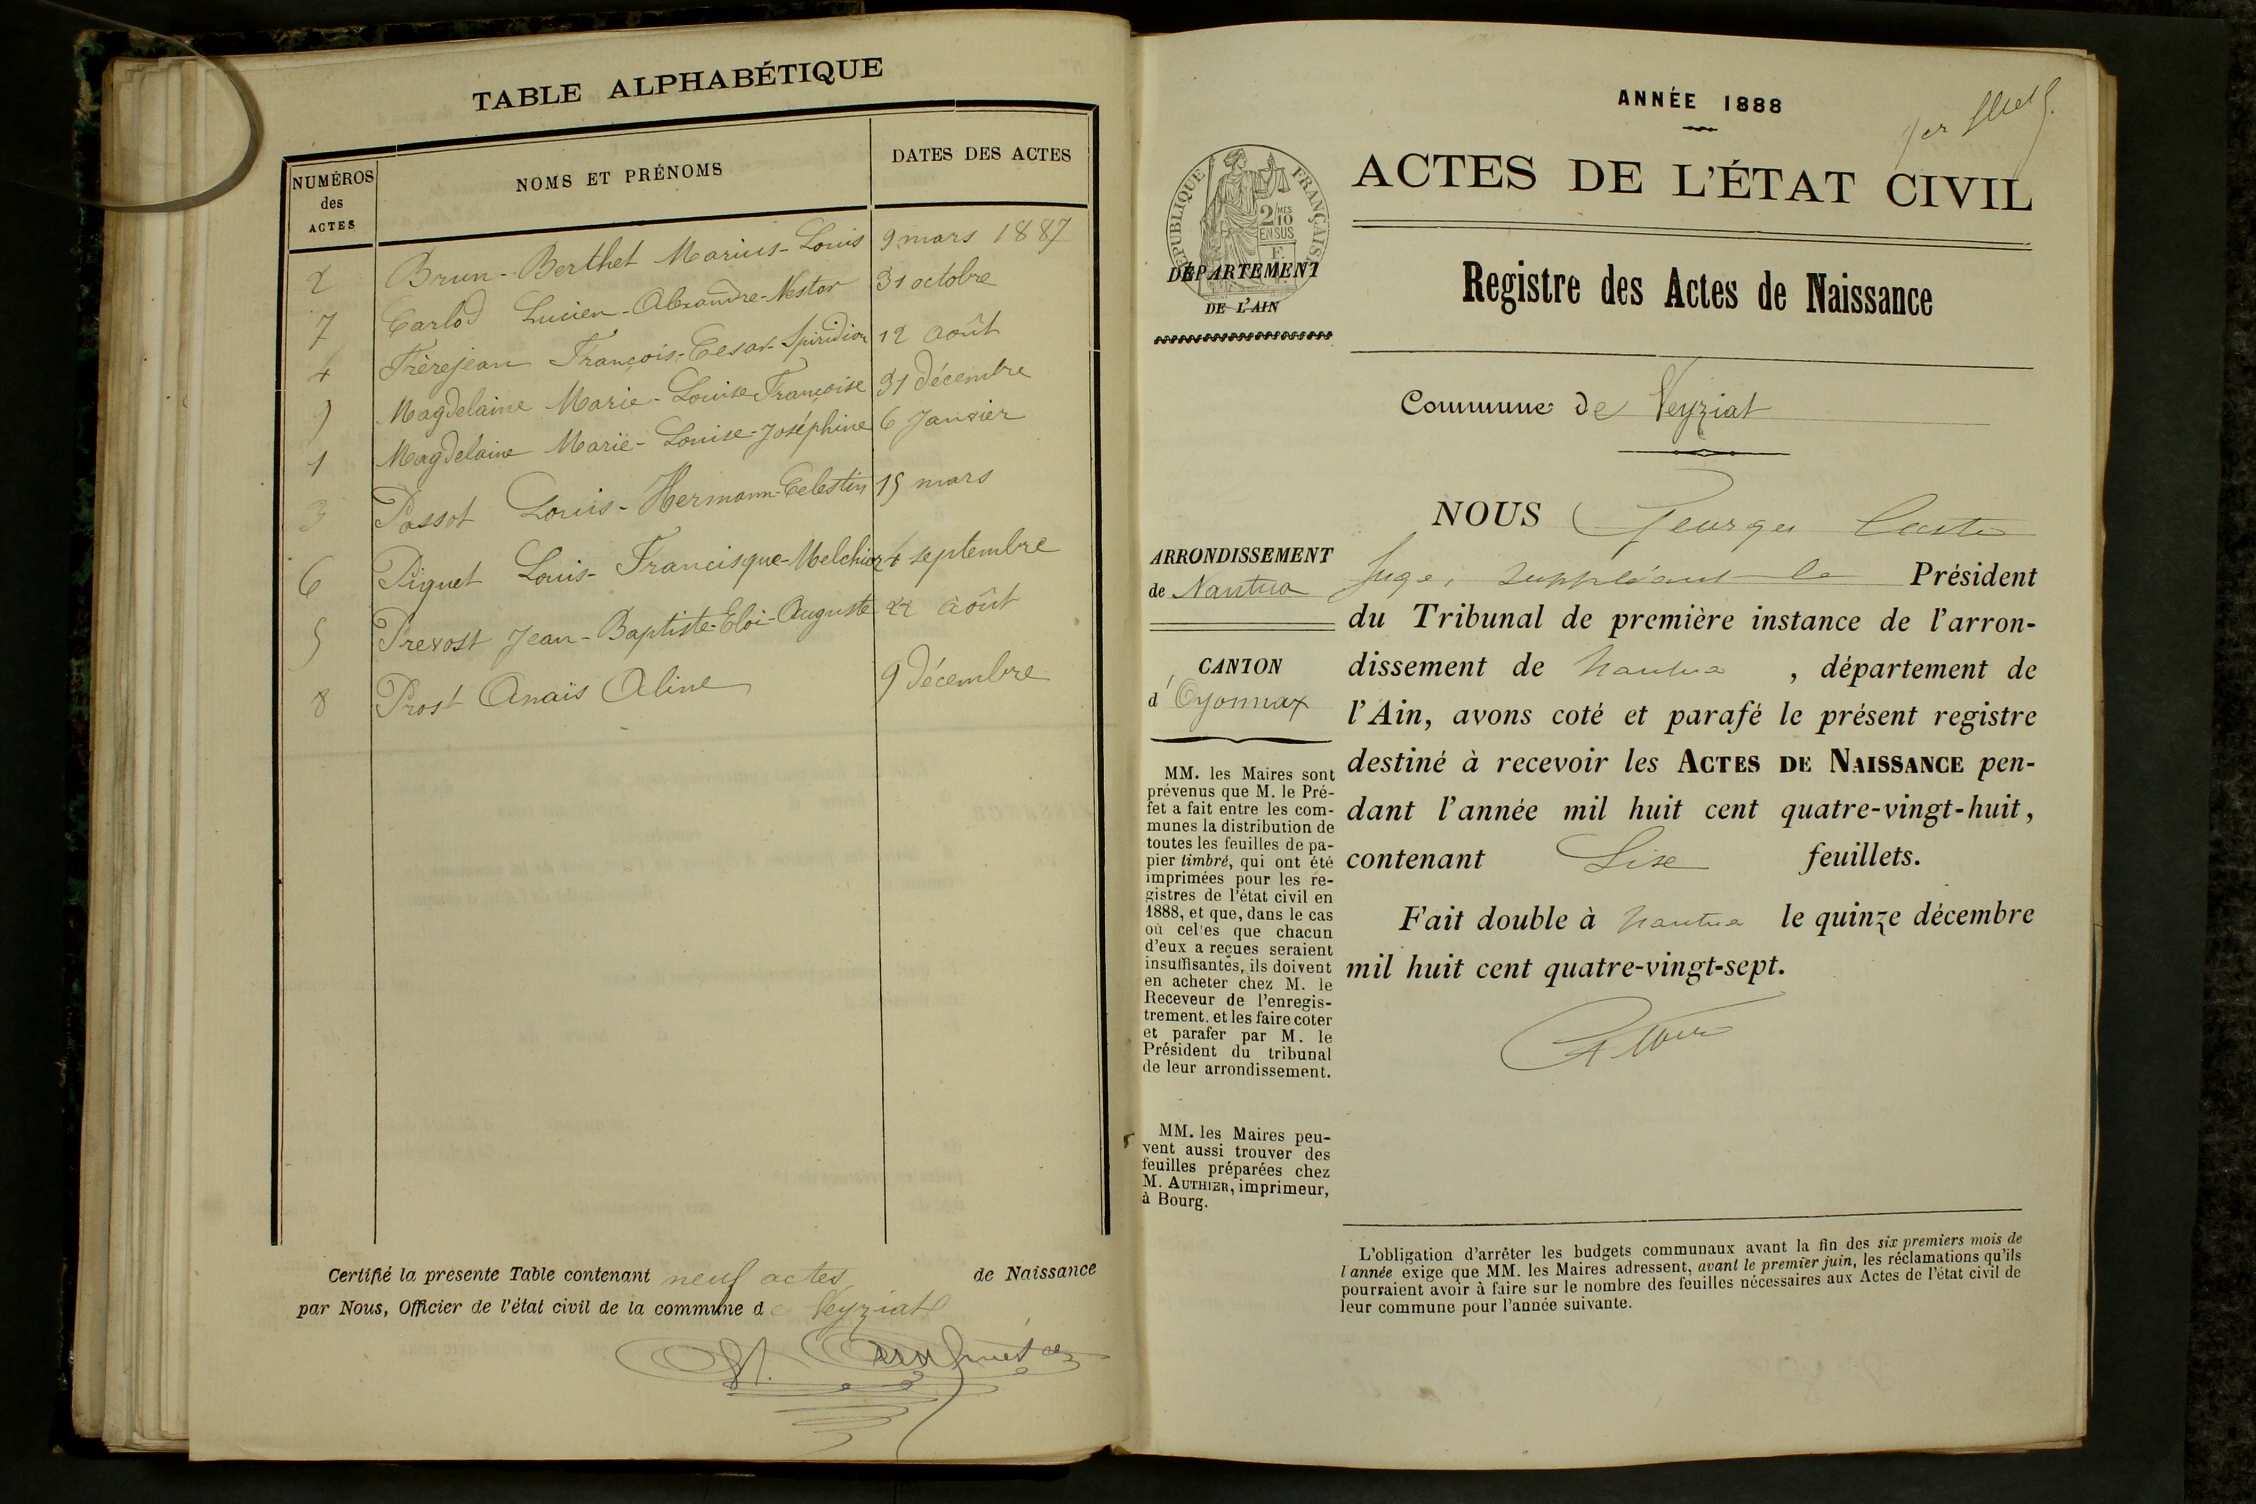 TABLE ALPHABÉTIQUE
NUMÉROS des ACTES
NOMS ET PRÉNOMS
DATES DES ACTES
2 Brun-Berthet Marius-Louis 9 mars 1887
7 Carlod Lucien-Alexandre-Nestor 31 octobre
4 Frèrejean François-Cesar-Spiridion 12 août
9 Magdelaine Marie-Louise Françoise 31 décembre
1 Magdelaine Marie-Louise-Joséphine 6 Janvier
3 Passot Louis-Hermann-Celestin 15 mars
6 Piquet Louis-Francisque-Melchior 4 septembre
5 Prevost Jean-Baptiste-Eloi-Auguste 22 août
8 Prost Anaïs Aline 9 décembre
Certifié la presente Table contenant neuf actes de Naissance
par Nous, Officier de l'état civil de la commune de Veyziat
ANNÉE 1888
1er
ACTES DE L'ÉTAT CIVIL
RÉPUBLIQUE FRANÇAISE
2/MES
10
EN SUS
DÉPARTEMENT
DE L'AIN
Registre des Actes de Naissance
Commune de Veyziat
ARRONDISSEMENT
de Nantua
CANTON
d'Oyonnax
MM. les Maires sont
prévenus que M. le Pré-
fet a fait entre les com-
munes la distribution de
toutes les feuilles de pa-
pier timbré, qui ont été
imprimées pour les re-
gistres de l'état civil en
1888, et que, dans le cas
où celles que chacun
d'eux a reçues seraient
insuffisantes, ils doivent
en acheter chez M. le
Receveur de l'enregis-
trement. et les faire coter
et parafer par M. le
Président du tribunal
de leur arrondissement.
MM. les Maires peu-
vent aussi trouver des
feuilles préparées chez
M. AUTHIER, imprimeur,
à Bourg.
NOUS Georges
Juge, suppléant le Président
du Tribunal de première instance de l'arron-
dissement de Nantua , département de
l'Ain, avons coté et parafé le présent registre
destiné à recevoir les ACTES DE NAISSANCE pen-
dant l'année mil huit cent quatre-vingt-huit,
contenant Six feuillets.
Fait double à Nantua le quinze décembre
mil huit cent quatre-vingt-sept.
L'obligation d'arrêter les budgets communaux avant la fin des six premiers mois de
l'année exige que MM. les Maires adressent, avant le premier juin, les réclamations qu'ils
pourraient avoir à faire sur le nombre des feuilles nécessaires aux Actes de l'état civil de
leur commune pour l'année suivante.